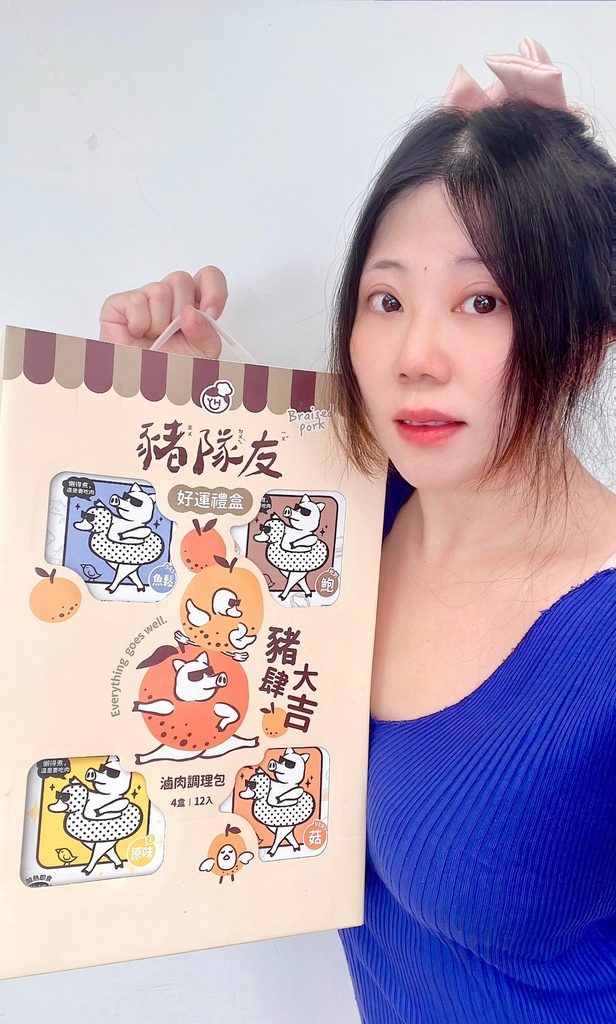 YH
Braised
pork
豬隊友
ㄓㄨ ㄉㄨㄟˋ ㄧㄡˇ
好運禮盒
懶得煮，
還是要吃肉
魚鬆
鮑
Everything goes well.
豬肆
大吉
滷肉調理包
4盒｜12入
懶得煮，
還是要吃肉
原味
加熱即食
菇